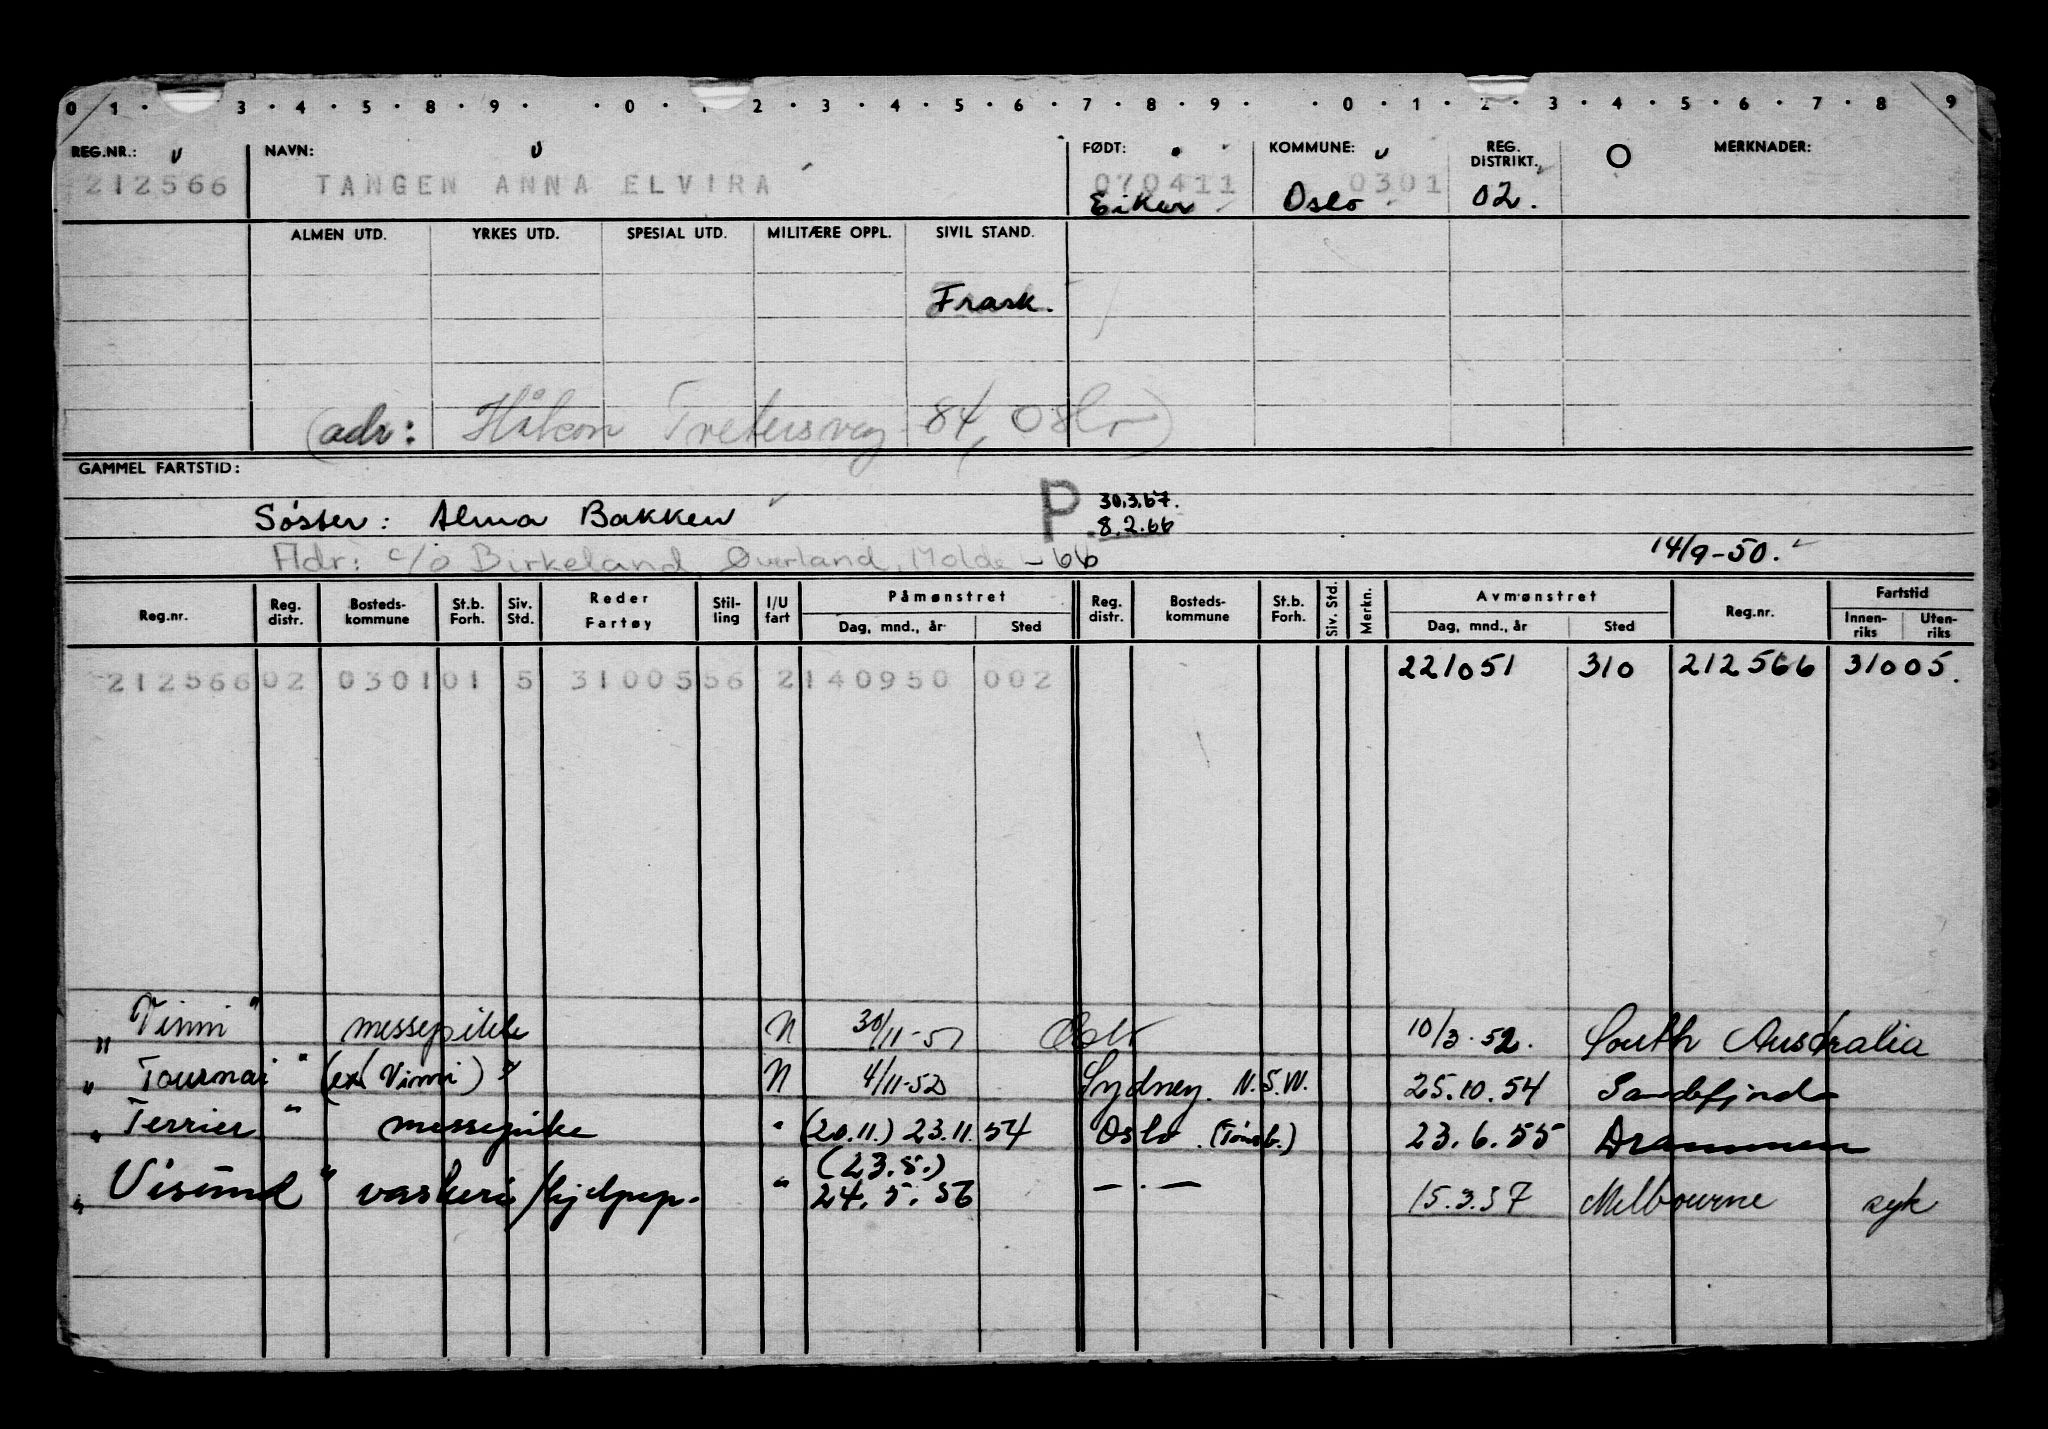 0 1 · 3 · 4 · 5 · 8 · 9 · · 0 · 1 · 2 · 3 · 4 · 5 · 6 · 7 · 8 · 9 · · 0 · 1 · 2 · 3 · 4 · 5 · 6 · 7 · 8 9
REG.NR.: NAVN: FØDT: KOMMUNE: REG. DISTRIKT. O MERKNADER:
212566 TANGEN ANNA ELVIRA 070411 0301
Eiker Oslo 02.
ALMEN UTD. YRKES UTD. SPESIAL UTD. MILITÆRE OPPL. SIVIL STAND.
Frask.
(adr: Håkon Tvetersveg 84, Oslo)
GAMMEL FARTSTID:
Søster: Alma Bakken P 30.3.67.
8.2.66
Adr: c/o Birkeland, Øverland, Molde -66 14/9-50.
Reg.nr. Reg. distr. Bosteds-kommune St.b. Forh. Siv. Std. Reder Fartøy Stil-ling I/U fart Påmønstret Dag, mnd., år Sted Reg. distr. Bosteds-kommune St.b. Forh. Siv. Std. Merkn. Avmønstret Dag, mnd., år Sted Reg.nr. Fartstid Innen-riks Uten-riks
212566 02 0301 01 5 31005 56 2 140950 002 221051 310 212566 31005.
„Vinni" messepike N 30/11-51 Oslo 10/3.52. South Australia
„Tournai" (ex Vinni) " N 4/11-52 Sydney N.S.W. 25.10.54 Sandefjord
„Terrier" messepike " (20.11.) 23.11.54 Oslo (Tønsb.) 23.6.55 Drammen
(23.5.)
„Visund" vaskeri/hjelpep. " 24.5.56 — . — 15.3.57 Melbourne syk